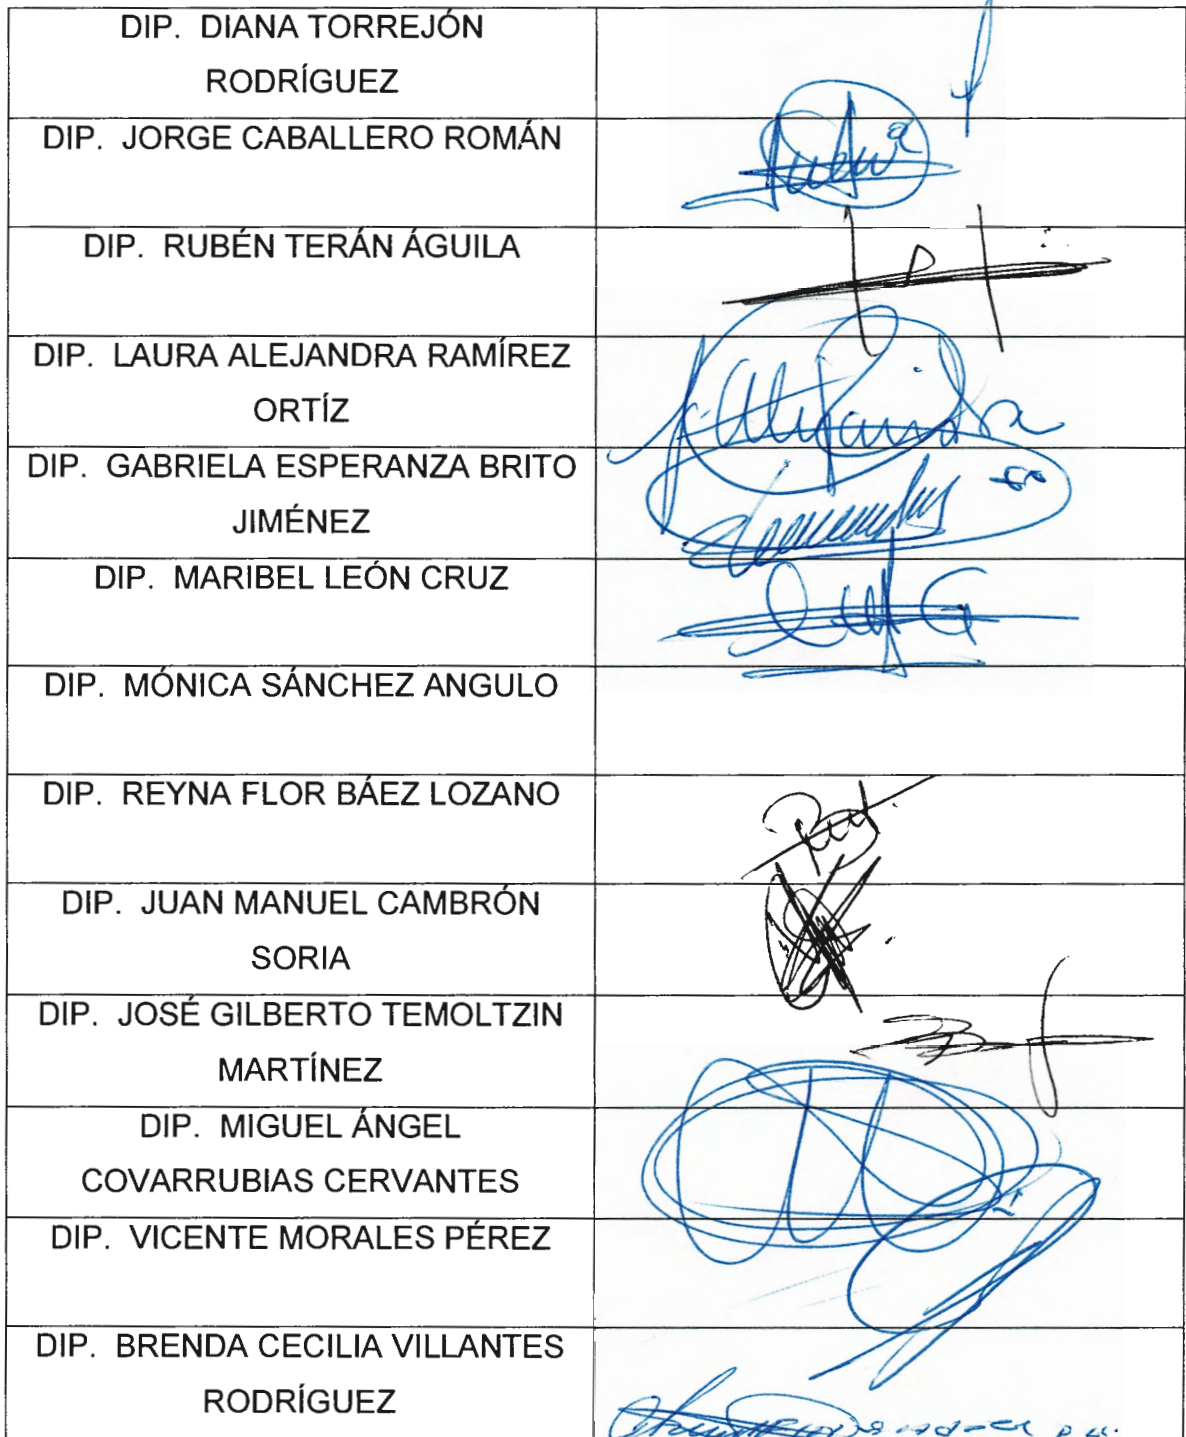 DIP. DIANA TORREJÓN
RODRÍGUEZ
DIP. JORGE CABALLERO ROMÁN
DIP. RUBÉN TERÁN ÁGUILA
DIP. LAURA ALEJANDRA RAMÍREZ
ORTÍZ
DIP. GABRIELA ESPERANZA BRITO
JIMÉNEZ
DIP. MARIBEL LEÓN CRUZ
DIP. MÓNICA SÁNCHEZ ANGULO
DIP. REYNA FLOR BÁEZ LOZANO
DIP. JUAN MANUEL CAMBRÓN
SORIA
DIP. JOSÉ GILBERTO TEMOLTZIN
MARTÍNEZ
DIP. MIGUEL ÁNGEL
COVARRUBIAS CERVANTES
DIP. VICENTE MORALES PÉREZ
DIP. BRENDA CECILIA VILLANTES
RODRÍGUEZ